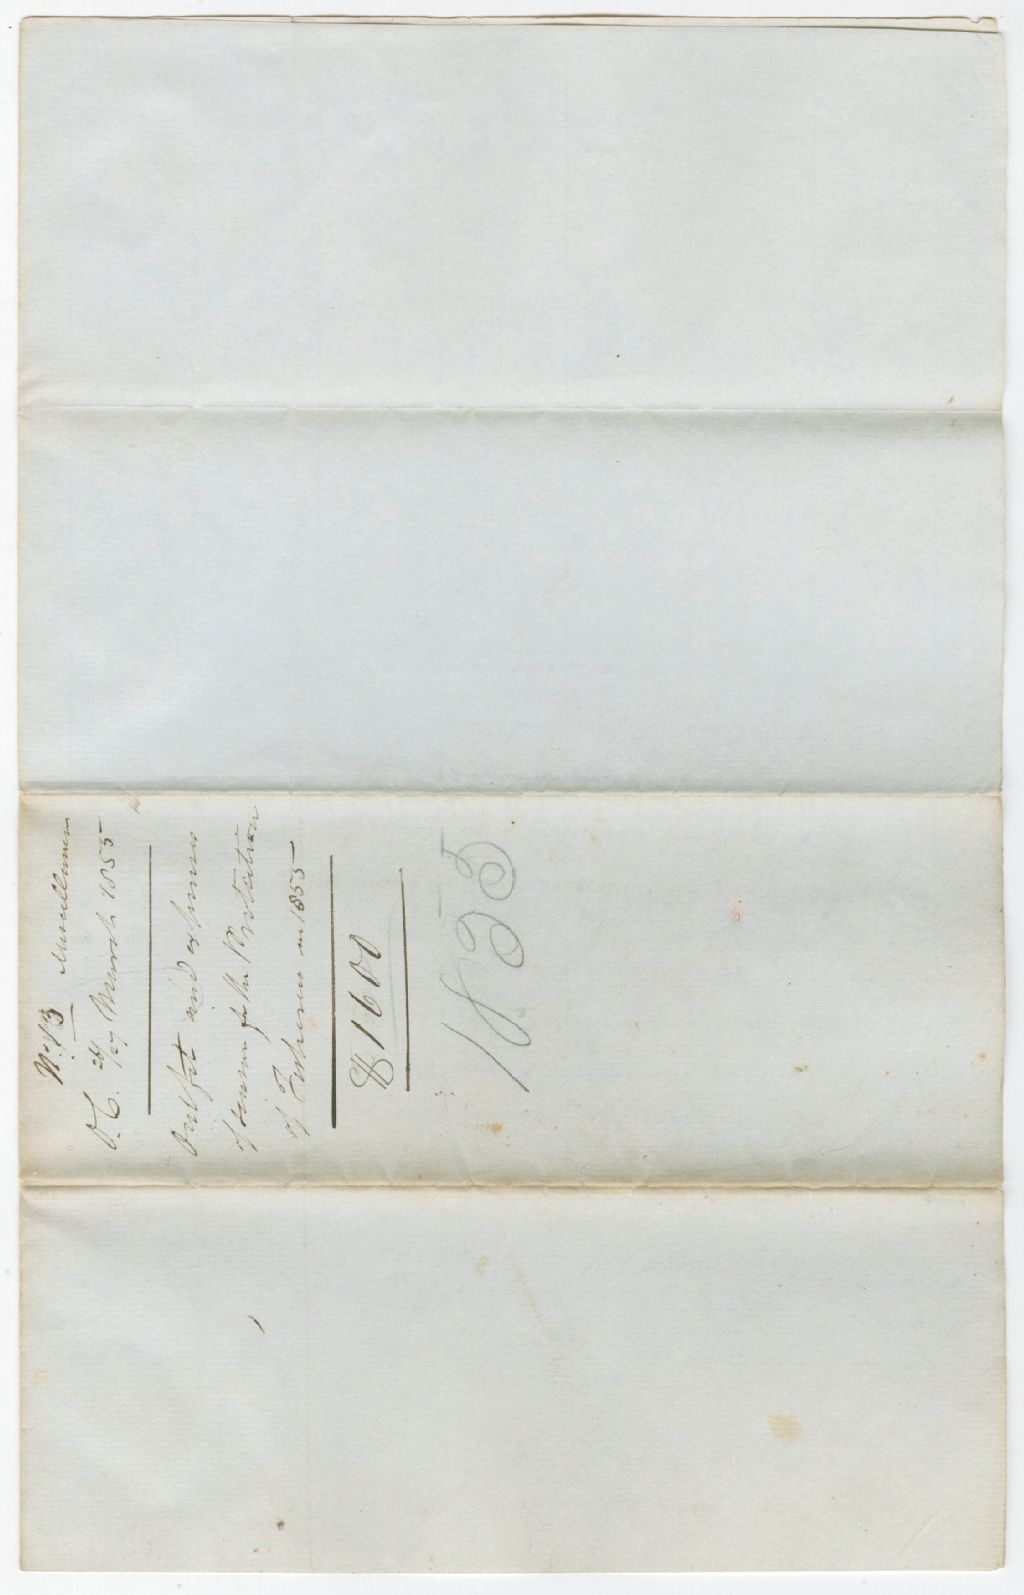 No. 13 Miscellaneous
O.C. 26/27 March 1855
Outfit and expenses
of steamer for the Protection
of Fisheries in 1855
£1600
1855